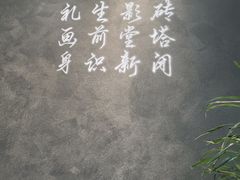 砖塔闭
影堂新
生前识
礼画身